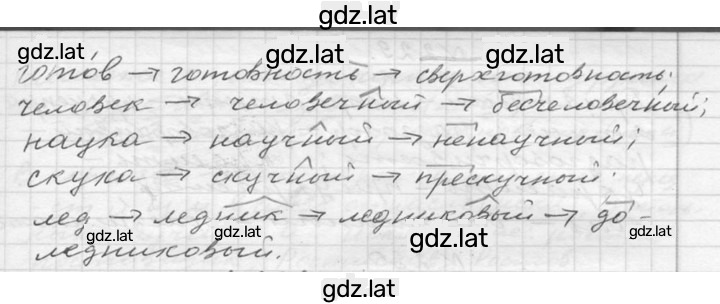 gdz.lat
gdz.lat
gdz.lat
готов → готовность → сверхготовность.
человек → человечный → бесчеловечный;
наука → научный → ненаучный;
скука → скучный → прескучный.
лед → ледник → ледниковый → до-
gdz.lat
gdz.lat
gdz.lat
ледниковый.
gdz.lat